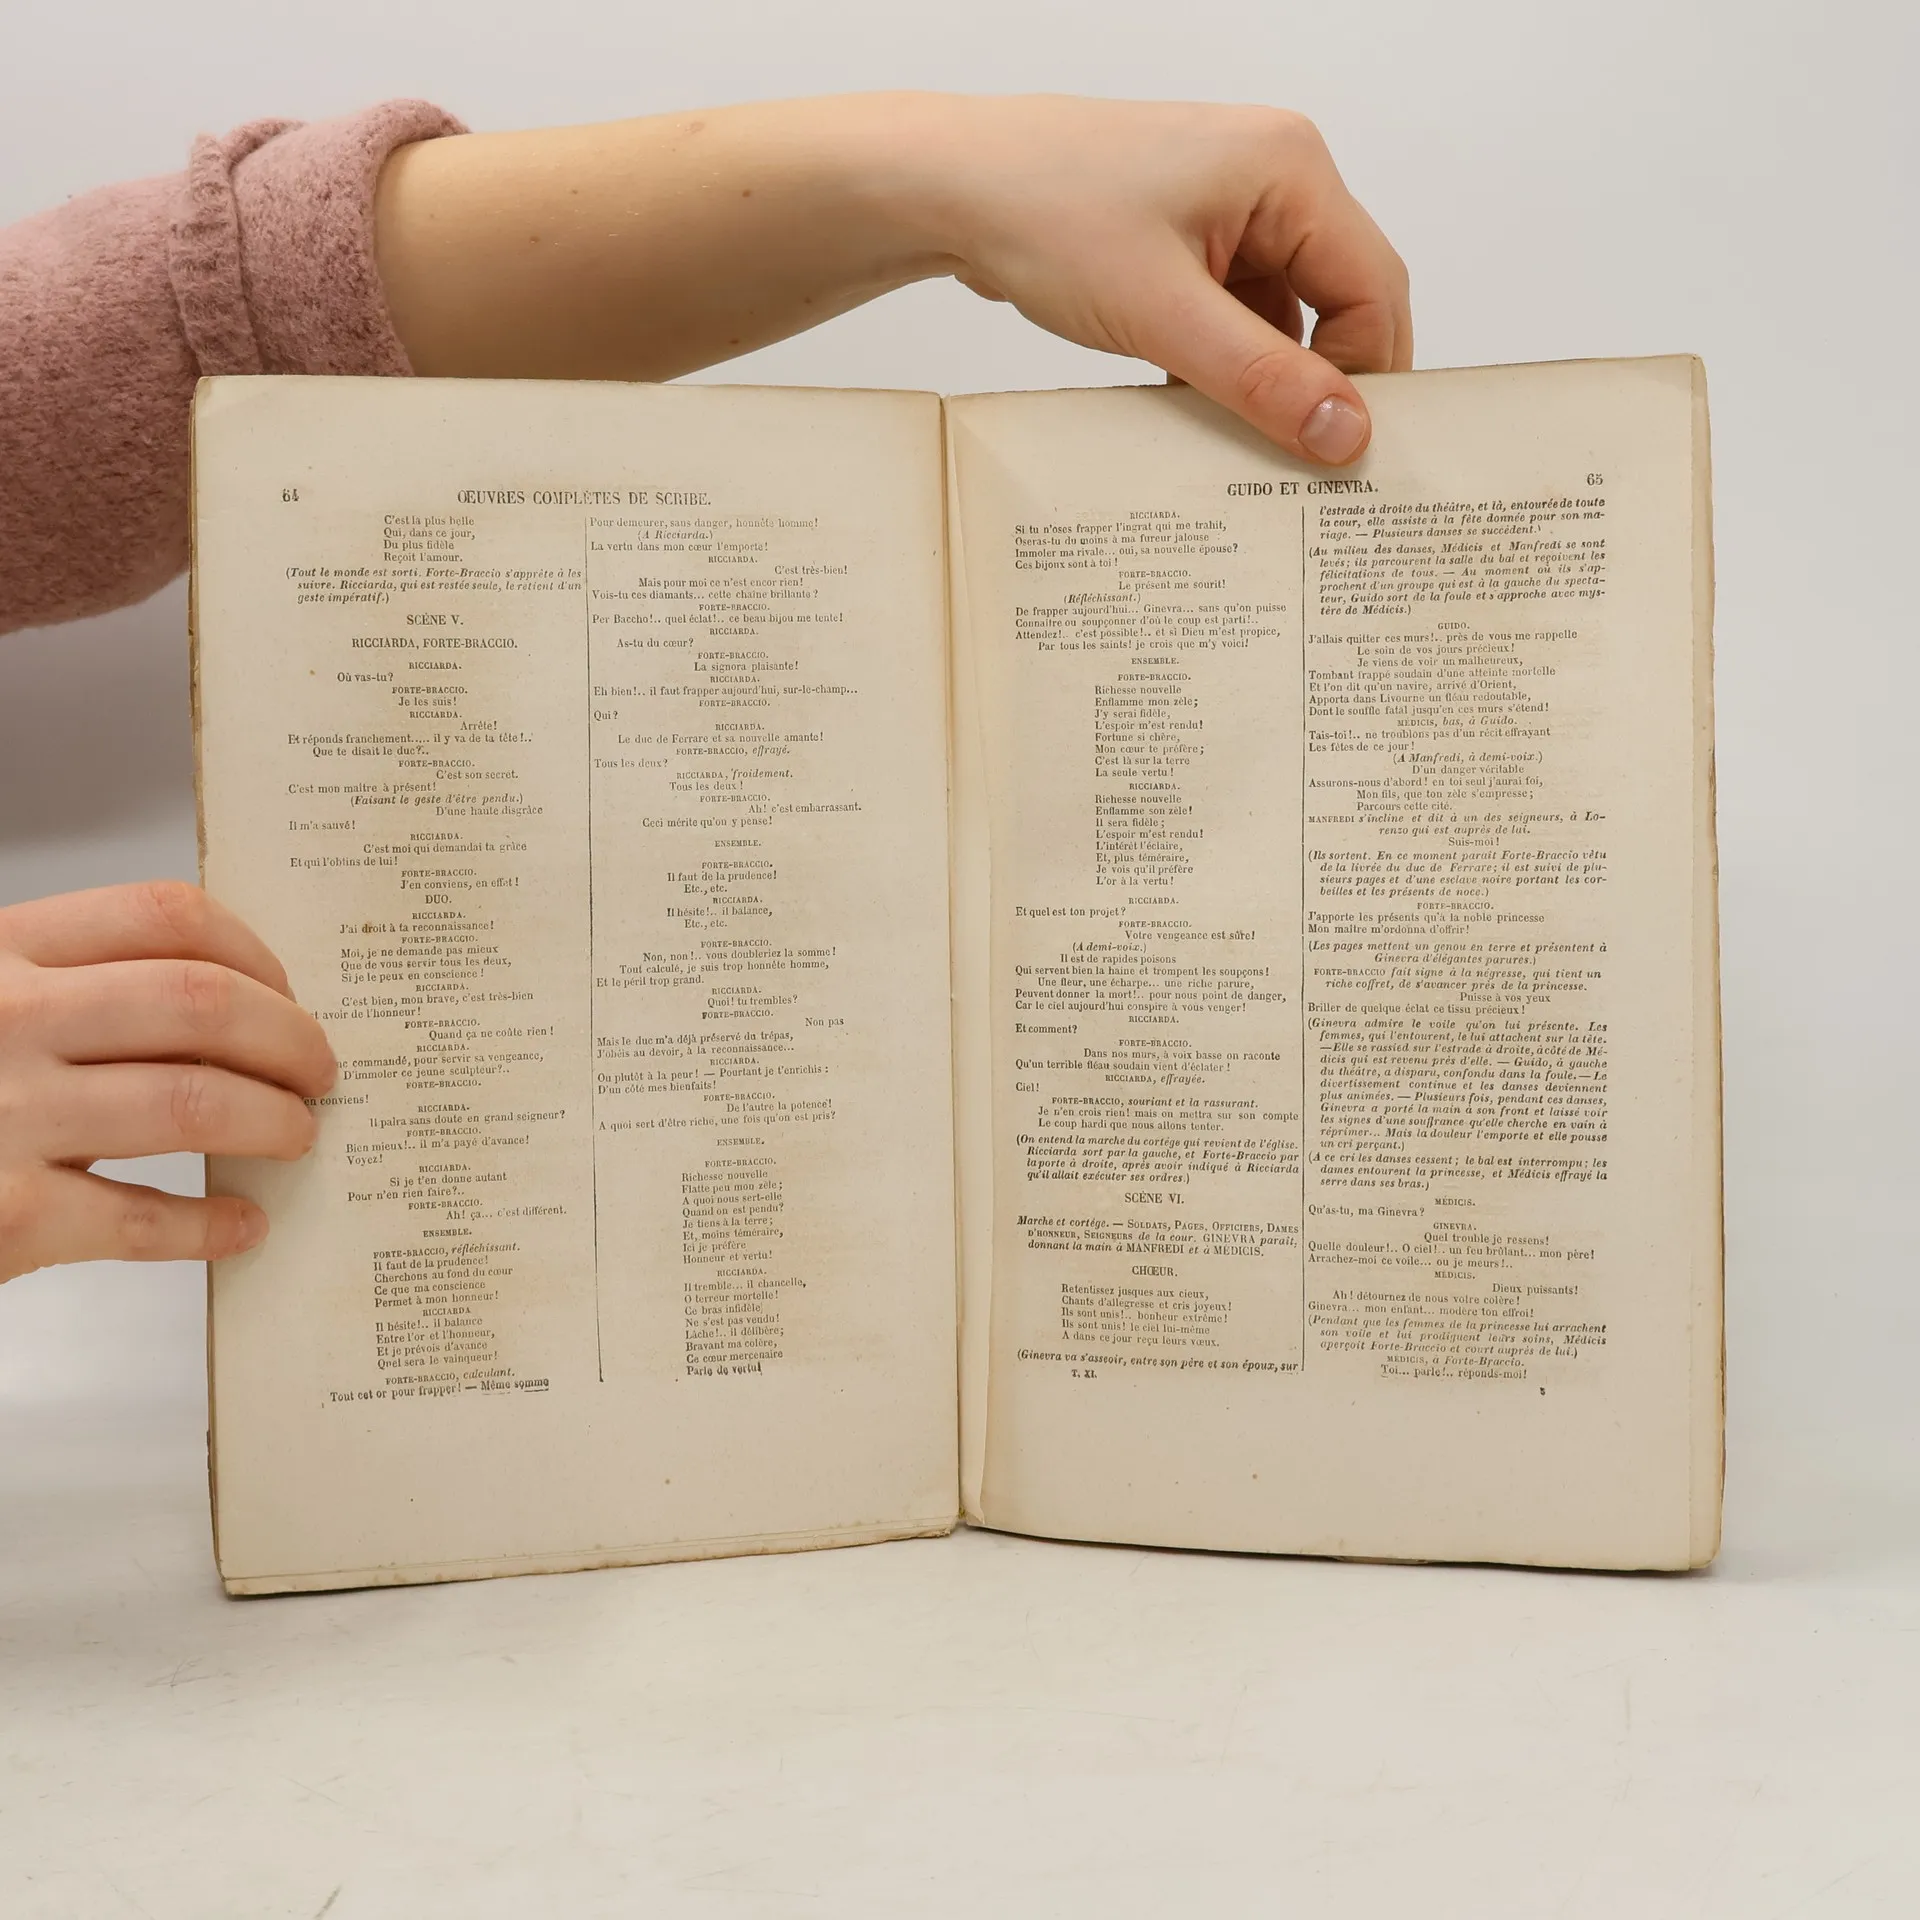 64
OEUVRES COMPLÈTES DE SCRIBE.
C'est la plus belle
Qui, dans ce jour,
Du plus fidèle
Reçoit l'amour.
(Tout le monde est sorti. Forte-Braccio s'apprête à les
suivre. Ricciarda, qui est restée seule, le retient d'un
geste impératif.)
SCÈNE V.
RICCIARDA, FORTE-BRACCIO.
RICCIARDA.
Où vas-tu?
FORTE-BRACCIO.
Je les suis!
RICCIARDA.
Arrête!
Et réponds franchement..... il y va de ta tête!..
Que te disait le duc?..
FORTE-BRACCIO.
C'est son secret.
C'est mon maître à présent!
(Faisant le geste d'être pendu.)
D'une haute disgrâce
Il m'a sauvé!
RICCIARDA.
C'est moi qui demandai ta grâce
Et qui l'obtins de lui!
FORTE-BRACCIO.
J'en conviens, en effet!
DUO.
RICCIARDA.
J'ai droit à ta reconnaissance!
FORTE-BRACCIO.
Moi, je ne demande pas mieux
Que de vous servir tous les deux,
Si je le peux en conscience!
RICCIARDA.
C'est bien, mon brave, c'est très-bien
avoir de l'honneur!
FORTE-BRACCIO.
Quand ça ne coûte rien!
RICCIARDA.
commandé, pour servir sa vengeance,
D'immoler ce jeune sculpteur?..
FORTE-BRACCIO.
en conviens!
RICCIARDA.
Il paîra sans doute en grand seigneur?
FORTE-BRACCIO.
Bien mieux!.. il m'a payé d'avance!
Voyez!
RICCIARDA.
Si je t'en donne autant
Pour n'en rien faire?..
FORTE-BRACCIO.
Ah! ça... c'est différent.
ENSEMBLE.
FORTE-BRACCIO, réfléchissant.
Il faut de la prudence!
Cherchons au fond du cœur
Ce que ma conscience
Permet à mon honneur!
RICCIARDA
Il hésite!.. il balance
Entre l'or et l'honneur,
Et je prévois d'avance
Quel sera le vainqueur!
FORTE-BRACCIO, calculant.
Tout cet or pour frapper! — Même somme
Pour demeurer, sans danger, honnête homme!
(A Ricciarda.)
La vertu dans mon cœur l'emporte!
RICCIARDA.
C'est très-bien!
Mais pour moi ce n'est encor rien!
Vois-tu ces diamants... cette chaîne brillante?
FORTE-BRACCIO.
Per Baccho!.. quel éclat!.. ce beau bijou me tente!
RICCIARDA.
As-tu du cœur?
FORTE-BRACCIO.
La signora plaisante!
RICCIARDA.
Eh bien!.. il faut frapper aujourd'hui, sur-le-champ...
FORTE-BRACCIO.
Qui?
RICCIARDA.
Le duc de Ferrare et sa nouvelle amante!
FORTE-BRACCIO, effrayé.
Tous les deux?
RICCIARDA, froidement.
Tous les deux!
FORTE-BRACCIO.
Ah! c'est embarrassant.
Ceci mérite qu'on y pense!
ENSEMBLE.
FORTE-BRACCIO.
Il faut de la prudence!
Etc., etc.
RICCIARDA.
Il hésite!.. il balance,
Etc., etc.
FORTE-BRACCIO.
Non, non!.. vous doubleriez la somme!
Tout calculé, je suis trop honnête homme,
Et le péril trop grand.
RICCIARDA.
Quoi! tu trembles?
FORTE-BRACCIO.
Non pas
Mais le duc m'a déjà préservé du trépas,
J'obéis au devoir, à la reconnaissance...
RICCIARDA.
Ou plutôt à la peur! — Pourtant je t'enrichis:
D'un côté mes bienfaits!
FORTE-BRACCIO.
De l'autre la potence!
A quoi sert d'être riche, une fois qu'on est pris?
ENSEMBLE.
FORTE-BRACCIO.
Richesse nouvelle
Flatte peu mon zèle;
A quoi nous sert-elle
Quand on est pendu?
Je tiens à la terre;
Et, moins téméraire,
Ici je préfère
Honneur et vertu!
RICCIARDA.
Il tremble... il chancelle,
O terreur mortelle!
Ce bras infidèle
Ne s'est pas vendu!
Lâche!.. il délibère;
Bravant ma colère,
Ce cœur mercenaire
Parle de vertu!
GUIDO ET GINEVRA.
65
RICCIARDA.
Si tu n'oses frapper l'ingrat qui me trahit,
Oseras-tu du moins à ma fureur jalouse
Immoler ma rivale... oui, sa nouvelle épouse?
Ces bijoux sont à toi!
FORTE-BRACCIO.
Le présent me sourit!
(Réfléchissant.)
De frapper aujourd'hui... Ginevra... sans qu'on puisse
Connaître ou soupçonner d'où le coup est parti!..
Attendez!.. c'est possible!.. et si Dieu m'est propice,
Par tous les saints! je crois que m'y voici!
ENSEMBLE.
FORTE-BRACCIO.
Richesse nouvelle
Enflamme mon zèle;
J'y serai fidèle,
L'espoir m'est rendu!
Fortune si chère,
Mon cœur te préfère;
C'est là sur la terre
La seule vertu!
RICCIARDA.
Richesse nouvelle
Enflamme son zèle!
Il sera fidèle;
L'espoir m'est rendu!
L'intérêt l'éclaire,
Et, plus téméraire,
Je vois qu'il préfère
L'or à la vertu!
RICCIARDA.
Et quel est ton projet?
FORTE-BRACCIO.
Votre vengeance est sûre!
(A demi-voix.)
Il est de rapides poisons
Qui servent bien la haine et trompent les soupçons!
Une fleur, une écharpe... une riche parure,
Peuvent donner la mort!.. pour nous point de danger,
Car le ciel aujourd'hui conspire à vous venger!
RICCIARDA.
Et comment?
FORTE-BRACCIO.
Dans nos murs, à voix basse on raconte
Qu'un terrible fléau soudain vient d'éclater!
RICCIARDA, effrayée.
Ciel!
FORTE-BRACCIO, souriant et la rassurant.
Je n'en crois rien! mais on mettra sur son compte
Le coup hardi que nous allons tenter.
(On entend la marche du cortége qui revient de l'église.
Ricciarda sort par la gauche, et Forte-Braccio par
la porte à droite, après avoir indiqué à Ricciarda
qu'il allait exécuter ses ordres.)
SCÈNE VI.
Marche et cortége. — SOLDATS, PAGES, OFFICIERS, DAMES
D'HONNEUR, SEIGNEURS de la cour. GINEVRA paraît,
donnant la main à MANFREDI et à MÉDICIS.
CHŒUR.
Retentissez jusques aux cieux,
Chants d'allégresse et cris joyeux!
Ils sont unis!.. bonheur extrême!
Ils sont unis! le ciel lui-même
A dans ce jour reçu leurs vœux.
(Ginevra va s'asseoir, entre son père et son époux, sur
T. XI.
l'estrade à droite du théâtre, et là, entourée de toute
la cour, elle assiste à la fête donnée pour son ma-
riage. — Plusieurs danses se succèdent.)
(Au milieu des danses, Médicis et Manfredi se sont
levés; ils parcourent la salle du bal et reçoivent les
félicitations de tous. — Au moment où ils s'ap-
prochent d'un groupe qui est à la gauche du specta-
teur, Guido sort de la foule et s'approche avec mys-
tère de Médicis.)
GUIDO.
J'allais quitter ces murs!.. près de vous me rappelle
Le soin de vos jours précieux!
Je viens de voir un malheureux,
Tombant frappé soudain d'une atteinte mortelle
Et l'on dit qu'un navire, arrivé d'Orient,
Apporta dans Livourne un fléau redoutable,
Dont le souffle fatal jusqu'en ces murs s'étend!
MÉDICIS, bas, à Guido.
Tais-toi!.. ne troublons pas d'un récit effrayant
Les fêtes de ce jour!
(A Manfredi, à demi-voix.)
D'un danger véritable
Assurons-nous d'abord! en toi seul j'aurai foi,
Mon fils, que ton zèle s'empresse;
Parcours cette cité.
MANFREDI s'incline et dit à un des seigneurs, à Lo-
renzo qui est auprès de lui.
Suis-moi!
(Ils sortent. En ce moment paraît Forte-Braccio vêtu
de la livrée du duc de Ferrare; il est suivi de plu-
sieurs pages et d'une esclave noire portant les cor-
beilles et les présents de noce.)
FORTE-BRACCIO.
J'apporte les présents qu'à la noble princesse
Mon maître m'ordonna d'offrir!
(Les pages mettent un genou en terre et présentent à
Ginevra d'élégantes parures.)
FORTE-BRACCIO fait signe à la négresse, qui tient un
riche coffret, de s'avancer près de la princesse.
Puisse à vos yeux
Briller de quelque éclat ce tissu précieux!
(Ginevra admire le voile qu'on lui présente. Les
femmes, qui l'entourent, le lui attachent sur la tête.
—Elle se rassied sur l'estrade à droite, à côté de Mé-
dicis qui est revenu près d'elle. — Guido, à gauche
du théâtre, a disparu, confondu dans la foule. — Le
divertissement continue et les danses deviennent
plus animées. — Plusieurs fois, pendant ces danses,
Ginevra a porté la main à son front et laissé voir
les signes d'une souffrance qu'elle cherche en vain à
réprimer... Mais la douleur l'emporte et elle pousse
un cri perçant.)
(A ce cri les danses cessent; le bal est interrompu; les
dames entourent la princesse, et Médicis effrayé la
serre dans ses bras.)
MÉDICIS.
Qu'as-tu, ma Ginevra?
GINEVRA.
Quel trouble je ressens!
Quelle douleur!.. O ciel!.. un feu brûlant... mon père!
Arrachez-moi ce voile... ou je meurs!..
MÉDICIS.
Dieux puissants!
Ah! détournez de nous votre colère!
Ginevra... mon enfant... modère ton effroi!
(Pendant que les femmes de la princesse lui arrachent
son voile et lui prodiguent leurs soins, Médicis
aperçoit Forte-Braccio et court auprès de lui.)
MÉDICIS, à Forte-Braccio.
Toi... parle!.. réponds-moi!
5